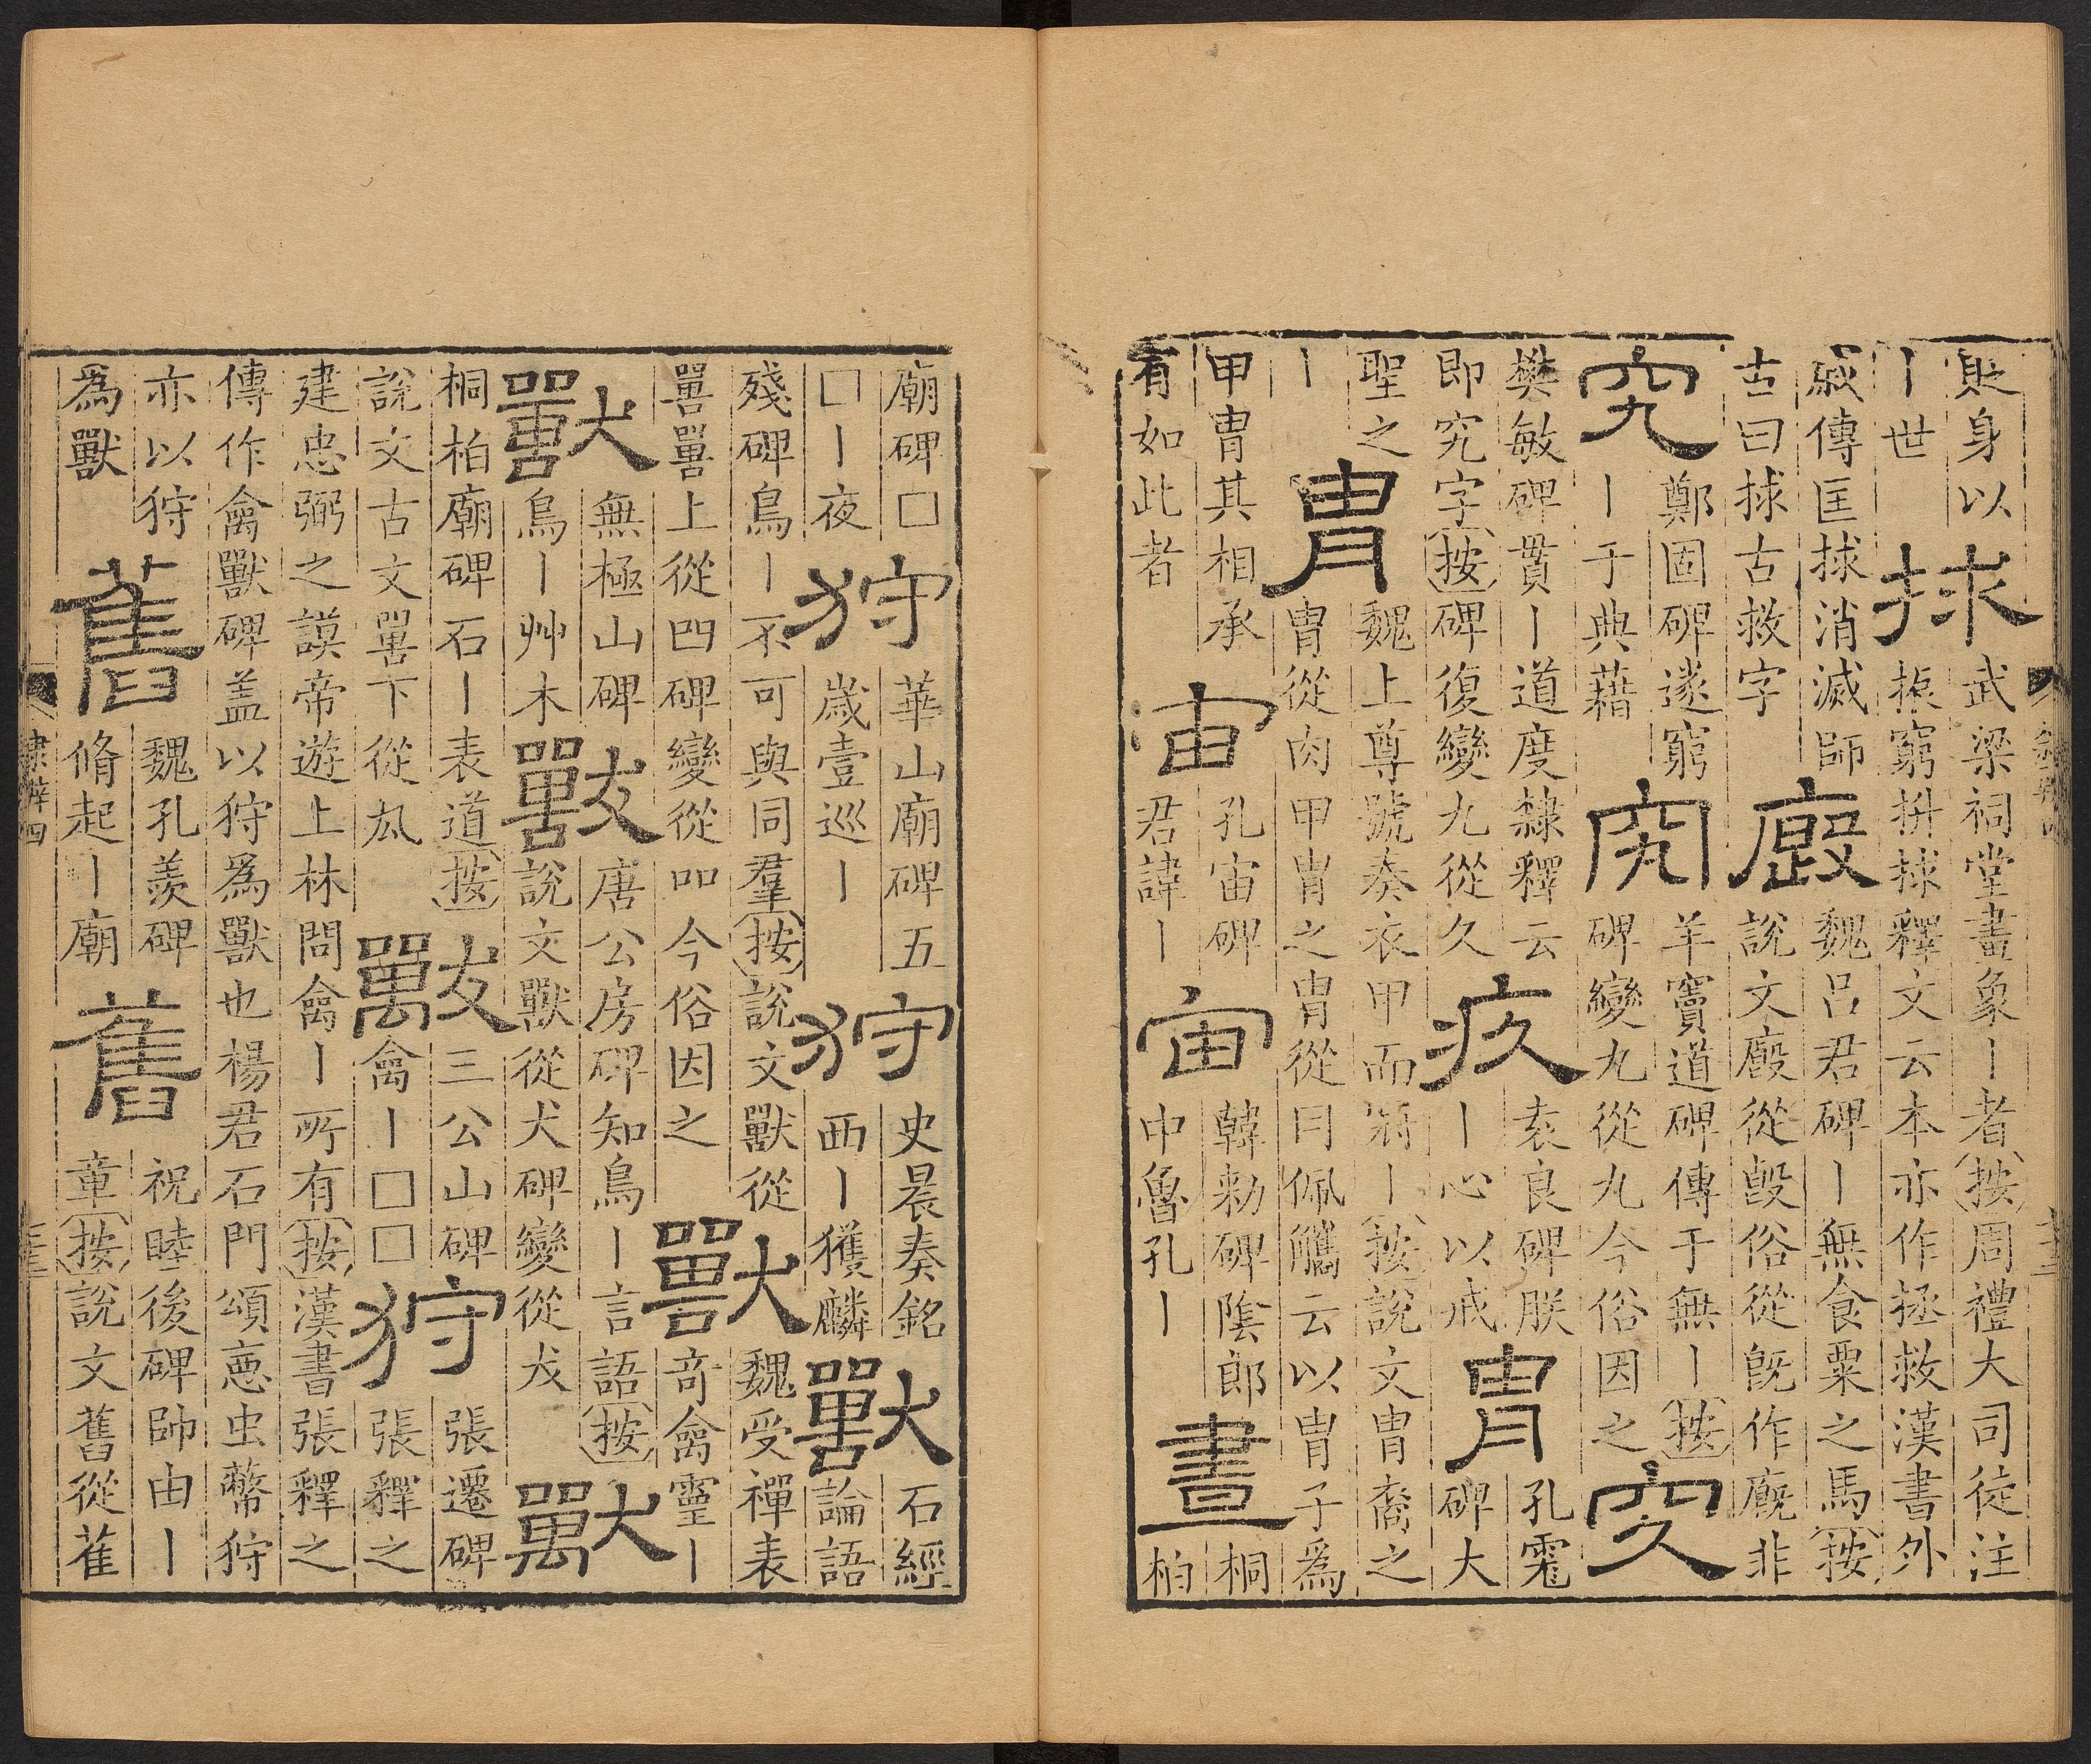 財身以
丨世
捄
武梁祠堂畫象丨者按周禮大司徒注
振窮拚捄釋文云本亦作拯救漢書外
戚傳匡捄消滅師
古曰捄古救字
廄
魏呂君碑丨無食粟之馬按
說文廄從𣪘俗從旣作廐非
究
鄭固碑遂窮
丨于典藉
究
羊竇道碑傳于無丨按
碑變九從丸今俗因之
㝌
樊敏碑貫丨道度隸釋云
即究字按碑復變九從久
疚
袁良碑朕
丨心以戒
胄
孔
碑大
聖之
丨
胄
魏上尊號奏衣甲而將丨按說文冑裔之
冑從肉甲冑之冑從冃佩觿云以冑子為
甲冑其相承
有如此者
宙
孔宙碑
君諱丨
宙
韓勑碑陰郎
中魯孔丨
晝
桐
柏
廟碑□
□丨夜
狩
華山廟碑五
歲壹巡丨
狩
史晨奏銘
西丨獲麟
獸
石經
論語
殘碑鳥丨不可與同羣按說文獸從
嘼嘼上從四碑變從吅今俗因之
獸
魏受禪表
奇禽靈丨
獸
無極山碑
鳥丨艸木
獸
唐公房碑知鳥丨言語按
說文獸從犬碑變從犮
獸
桐柏廟碑石丨表道按
說文古文嘼下從厹
獸
三公山碑
禽丨□□
狩
張遷碑
張釋之
建忠弼之謨帝遊上林問禽丨所有按漢書張釋之
傳作禽獸碑盖以狩為獸也楊君石門頌惡虫蔽狩
亦以狩
為獸
舊
魏孔羨碑
脩起丨廟
舊
祝睦後碑帥由丨
章按說文舊從萑
隸辨四